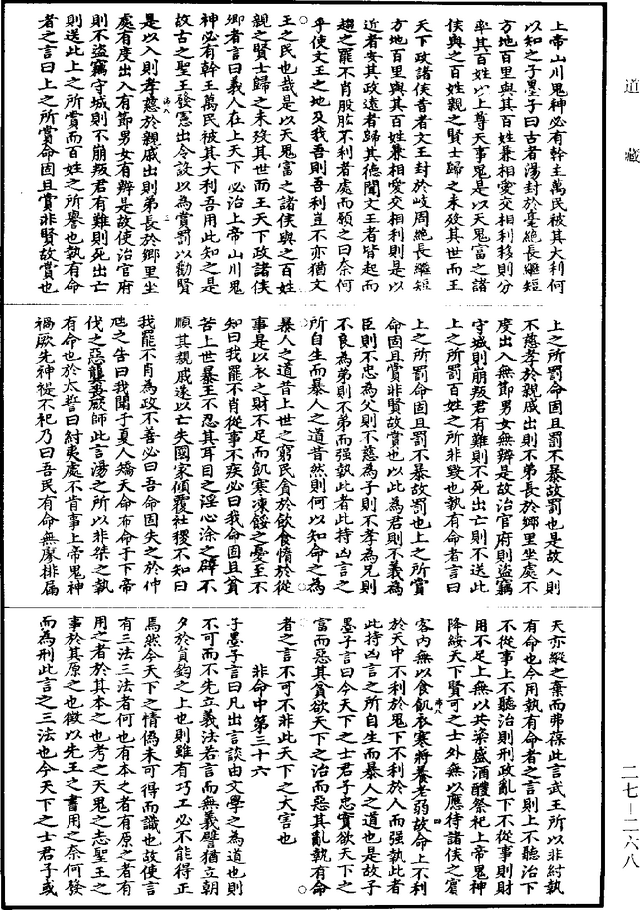 道藏
上帝山川鬼神必有幹主萬民被其大利何
以知之子墨子曰古者湯封於亳絶長繼短
方地百里與其百姓兼相愛交相利移則分
率其百姓以上尊天事鬼是以天鬼富之諸
侯與之百姓親之賢士歸之未殁其世而王
天下政諸侯昔者文王封於岐周絶長繼短
方地百里與其百姓兼相愛交相利則是以
近者安其政遠者歸其德聞文王者皆起而
趨之罷不肖股肱不利者處而願之曰奈何
乎使文王之地及我吾則吾利豈不亦猶文
王之民也哉是以天鬼富之諸侯與之百姓
親之賢士歸之未殁其世而王天下政諸侯
鄉者言曰義人在上天下必治上帝山川鬼
神必有幹王萬民被其大利吾用此知之是
故古之聖王發憲出令設以為賞罰以勸賢
是以入則孝慈於親戚出則弟長於鄉里坐
處有度出入有節男女有辨是故使治官府
則不盜竊守城則不崩叛君有難則死出亡
則送此上之所賞而百姓之所譽也執有命
者之言曰上之所賞命固且賞非賢故賞也
上之所罰命固且罰不暴故罰也是故入則
不慈孝於親戚出則不弟長於鄉里坐處不
度出入無節男女無辨是故治官府則盜竊
守城則崩叛君有難則不死出亡則不送此
上之所罰百姓之所非毀也執有命者言曰
上之所罰命固且罰不暴故罰也上之所賞
命固且賞非賢故賞也以此為君則不義為
臣則不忠為父則不慈為子則不孝為兄則
不良為弟則不弟而强執此者此持凶言之
所自生而暴人之道昔然則何以知命之為
暴人之道昔上世之窮民貪於飲食惰於從
事是以衣之財不足而飢寒凍餒之憂至不
知曰我罷不肖從事不疾必曰我命固且貧
苦上世暴王不忍其耳目之淫心涂之辟不
順其親戚遂以亡失國家傾覆社稷不知曰
我罷不肖為政不善必曰吾命固失之於仲
虺之告曰我聞于夏人矯天命布命于下帝
伐之惡龔喪厥師此言湯之所以非桀之執
有命也於太誓曰紂夷處不肯事上帝鬼神
禍厥先神禔不祀乃曰吾民有命無廖排扁
天亦縱之棄而弗葆此言武王所以非紂執
有命也今用執有命者之言則上不聽治下
不從事上不聽治則刑政亂下不從事則財
用不足上無以共粢盛酒醴祭祀上帝鬼神
降綏天下賢可之士外無以應待諸侯之賓
客内無以食飢衣寒將養老弱故命上不利
於天中不利於鬼下不利於人而强執此者
此持凶言之所自生而暴人之道也是故子
墨子言曰今天下之士君子忠實欲天下之
富而惡其貧欲天下之治而惡其亂執有命
者之言不可不非此天下之大害也
非命中第三十六
子墨子言曰凡出言談由文學之為道也則
不可而不先立義法若言而無義譬猶立朝
夕於負鈞之上也則雖有巧工必不能得正
焉然今天下之情僞未可得而識也故使言
有三法三法者何也有本之者有原之者有
用之者於其本之也考之天鬼之志聖王之
事於其原之也徵以先王之書用之奈何發
而為刑此言之三法也今天下之士君子或
二七—二六八